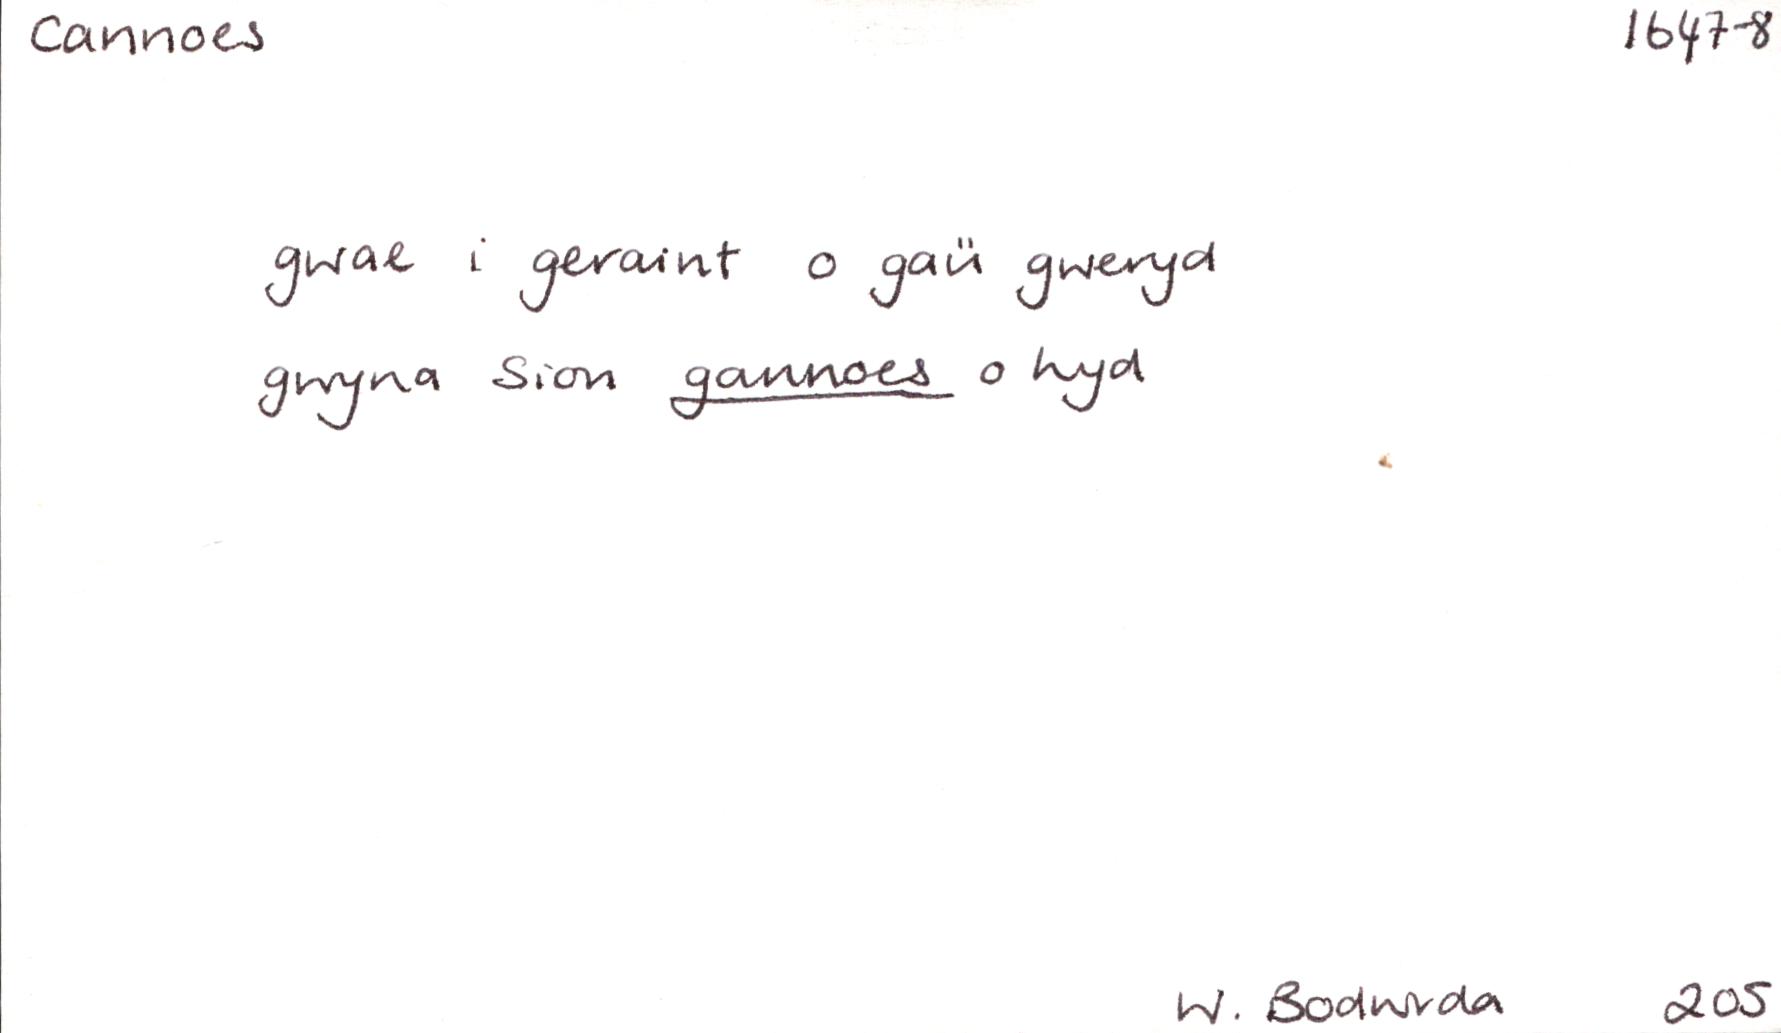 Cannoes 1647-8
gwae i geraint o gaü gweryd
gwyna Sion gannoes o hyd
W. Bodwrda 205